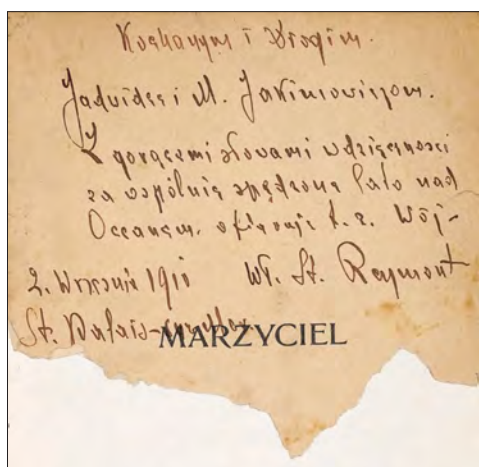 Kochanym i Drogim.
Jadwidze i M. Jakimowiczom.
Z gorącemi słowami wdzięczności
za wspólnie spędzone lato nad
Oceanem. ofiaruje t. z. Wój-
2. Września 1910 Wł. St. Reymont
St. Palais-
MARZYCIEL